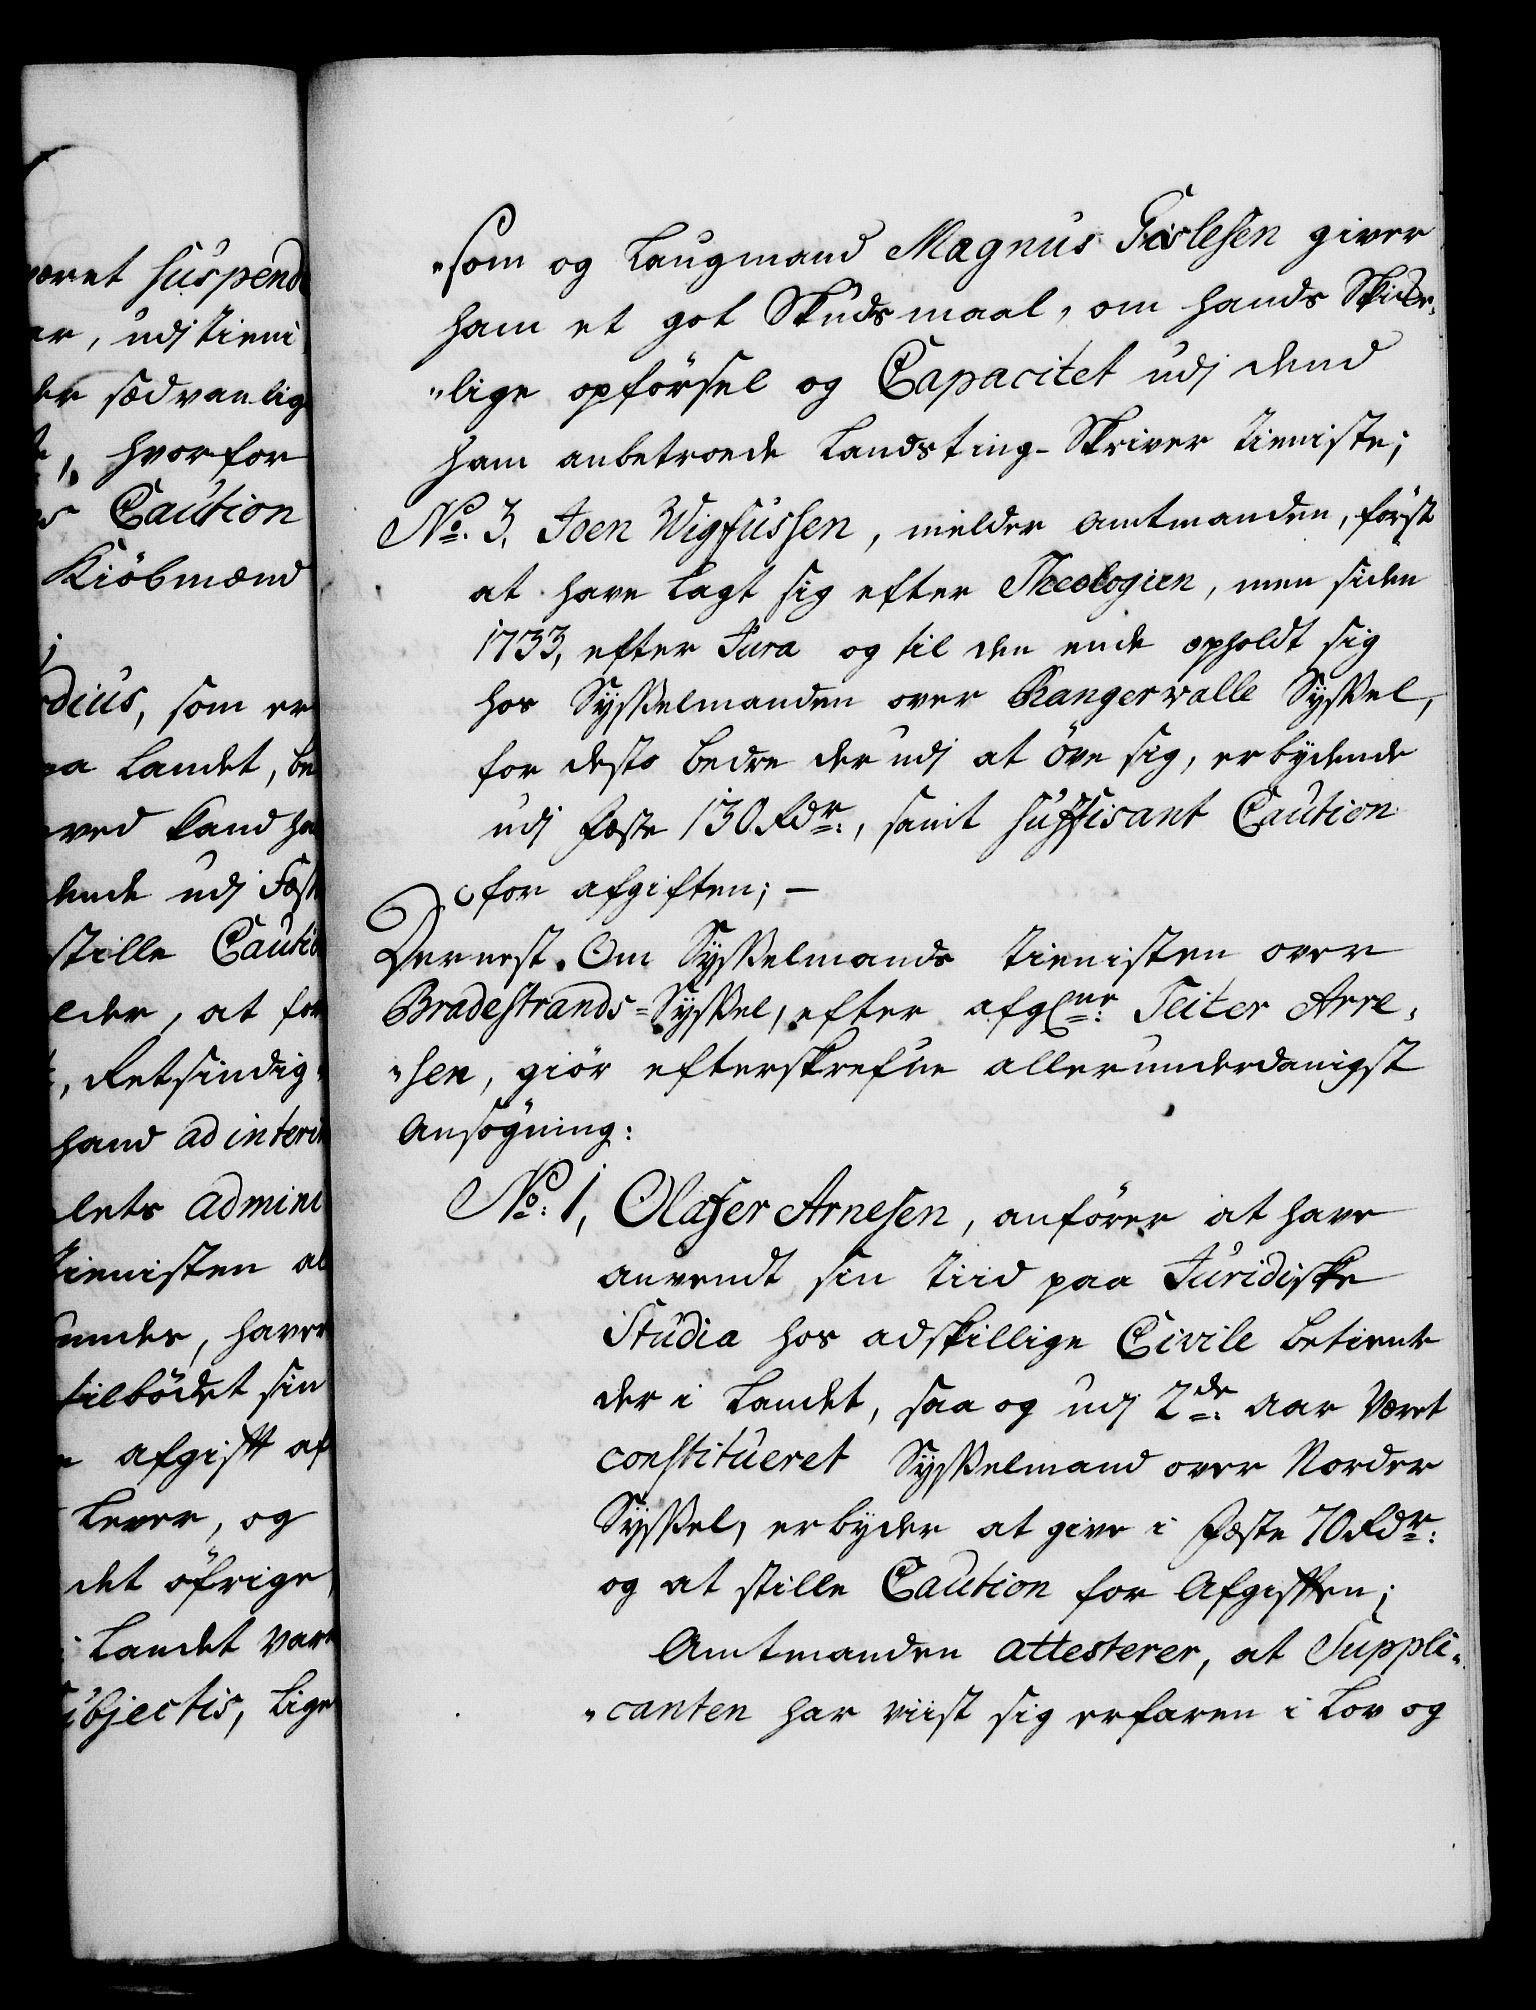 været suspend
er, udj tieni
der sædvanlig
hvorfor
Caution
Kiöbmænd
dius, som er
paa Landet, be
ved kand ha
dende udj Fæst
stille Cautio
elder, at for
, Retsindig-
hand ad interi
lets admini
tienisten al
under, haver
tilbödet sin
afgifft af
Lever, og
det öfrige
i Landet var
ubjectis, lige
"som og Laugmand Magnus Gislesen giver
ham et got Skudsmaal, om hands Skicke,
"lige opförsel og Capacitet udj dend
ham anbetroede Landsting-Skriver tieniste;
No. 3, Joen Wigfussen, melder Amtmanden, först
at have lagt sig efter Theologien, men siden
1733, efter Jura og til den ende opholdt sig
hos Sysselmanden over Rangervalle Syssel,
for desto bedre der udj at öve sig, erbydende
udj Fæste 130 Rdr., samt suffisant Caution
for afgiften; —
Dernest. Om Sysselmands tienisten over
Bradestrands-Syssel, efter afgl: Teiter Are,
"sen, giör efterskrefne allerunderdanigst
Ansögning:
No. 1, Olafer Arnesen, anförer at have
anvendt sin tiid paa Juridiske
Studia hos adskillige Civile betiente
der i Landet, saa og udj 2de: Aar været
constitueret Sysselmand over Norder
Syssel, erbyder at give i fæste 70 Rdr:
og at stille Caution for Afgifften;
Amtmanden attesterer, at Suppli„
"canten har viist sig erfaren i Lov og